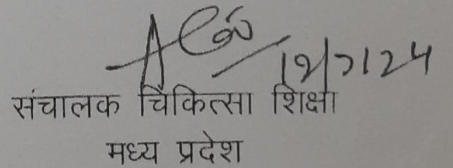 12/7/24
संचालक चिकित्सा शिक्षा
मध्य प्रदेश